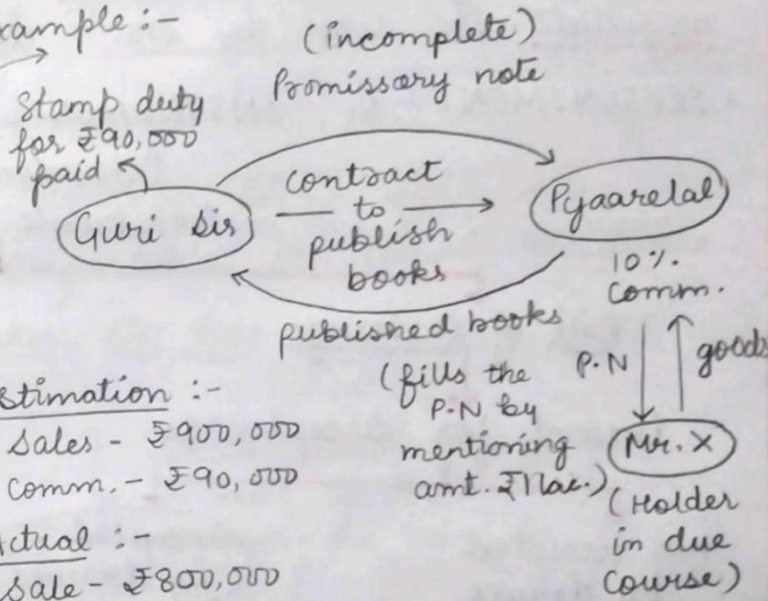 xample :-
(incomplete)
Promissory note
Stamp duty
for ₹90,000
paid
contract
to
publish
books
Guri Sir
Pyaarelal
10%.
Comm.
published books
(fills the
P.N by
mentioning
amt. ₹1 lac.)
P.N
goods
Mr. X
(Holder
in due
course)
stimation :-
Sales - ₹900,000
comm. - ₹90,000
ctual :-
Sale - ₹800,000